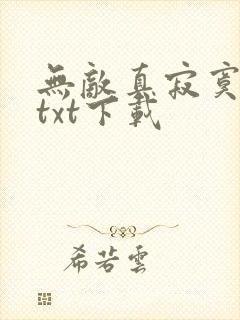 無敵真寂寞
txt下載
希若雲